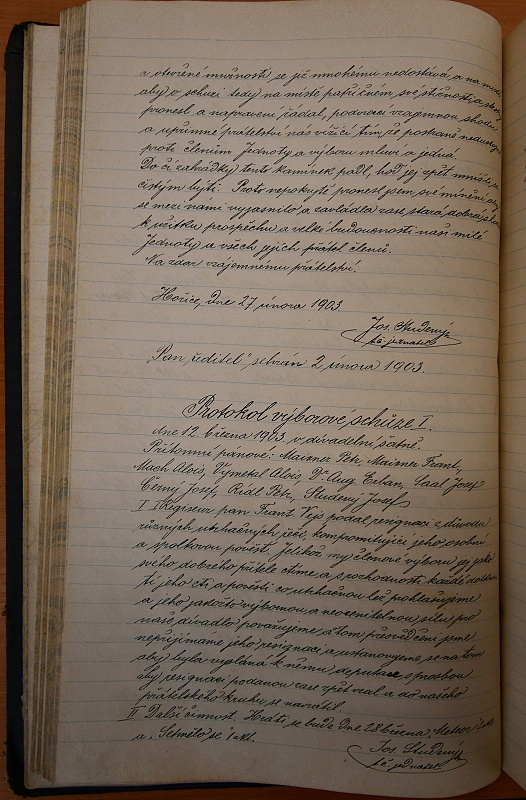 a otevřené mužnosti se již mnohému nedostává, a na místě
aby o schůzi tedy na místě patřičném své stížnosti a
pronesl a napravení žádal, podvrací vzájemnou shodu
a upřímné přátelství nás vížící tím, že postraně
proti členům Jednoty a výboru mluví a jedná.
Do čí zahrádky tento kamínek padl, hoď jej zpět
čistým býti. Proto nepokrytě pronesl jsem své mínění aby
se mezi námi vyjasnilo a zavládla zase stará, dobrá shoda
k užitku prospěchu a velké budoucnosti naší milé
jednoty a všech jejích přátel členů.
Na zdar vzájemnému přátelství.
Hořice, dne 27 února 1903
Jos. Studený
t.č. jednatel
„Pan ředitel" sehrán 2 února 1903.
Protokol výborové schůze I.
dne 12. března 1903 v divadelní šatně.
Přítomni pánové: Maixner Petr, Maixner Frant,
Mach Alois, Vymetal Alois, Dr. Aug Erban, Saal Josef
Černý Josef, Ridl Petr, Studený Josef
I Režiseur pan Frant. Vejs podal resignaci z důvodu
různých utrhačných řečí, kompromitující jeho osobní
a spolkovou pověst. Jelikož my členové výboru jej jako
svého dobrého přítele ctíme a s rozhodností každé
ti jeho cti a pověsti co utrhačnou lež pohlašujeme
a jeho jakožto výbornou a neocenitelnou sílu pro
naše divadlo považujeme, a tom přesvědčeni jsme
nepřijímáme jeho resignaci a ustanovujeme se na tom
aby byla vyslána k němu deputace s prosbou
aby resignaci podanou zase zpět vzal a do našeho
přátelského kruhu se navrátil.
II Další činnost. Hráti se bude dne 28 března, Meteor 1
a „Setmělo se" 1 akt.
Jos. Studený
t.č. jednatel